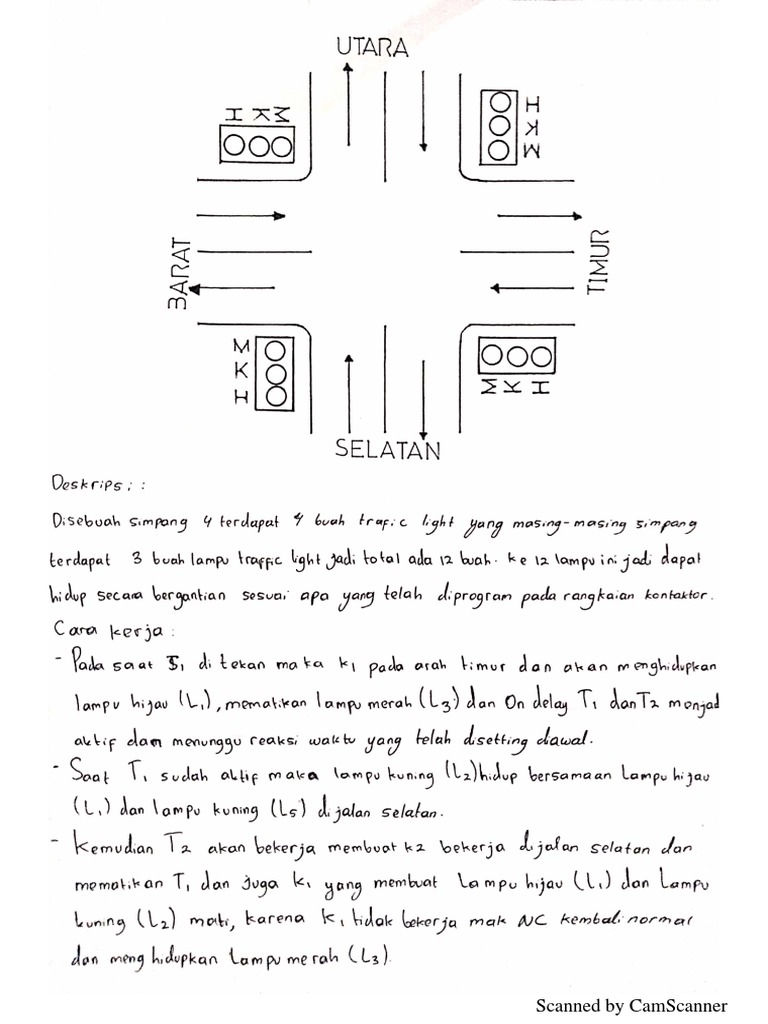 UTARA
H K M
H
K
M
BARAT
TIMUR
M
K
H
M K H
SELATAN
Deskripsi :
Disebuah simpang 4 terdapat 4 buah trafic light yang masing-masing simpang
terdapat 3 buah lampu traffic light, jadi total ada 12 buah. ke 12 lampu ini jadi dapat
hidup secara bergantian sesuai apa yang telah diprogram pada rangkaian kontaktor.
Cara kerja :
- Pada saat S1 di tekan maka k1 pada arah timur dan akan menghidupkan
lampu hijau (L1), mematikan lampu merah (L3) dan On delay T1 dan T2 menjad
aktif dan menunggu reaksi waktu yang telah disetting diawal.
- Saat T1 sudah aktif maka lampu kuning (L2) hidup bersamaan lampu hijau
(L1) dan lampu kuning (L5) di jalan selatan.
- Kemudian T2 akan bekerja membuat k2 bekerja dijalan selatan dan
mematikan T1 dan juga k1 yang membuat lampu hijau (L1) dan lampu
kuning (L2) mati, karena k1 tidak bekerja mak NC kembali normal
dan menghidupkan lampu merah (L3).
Scanned by CamScanner